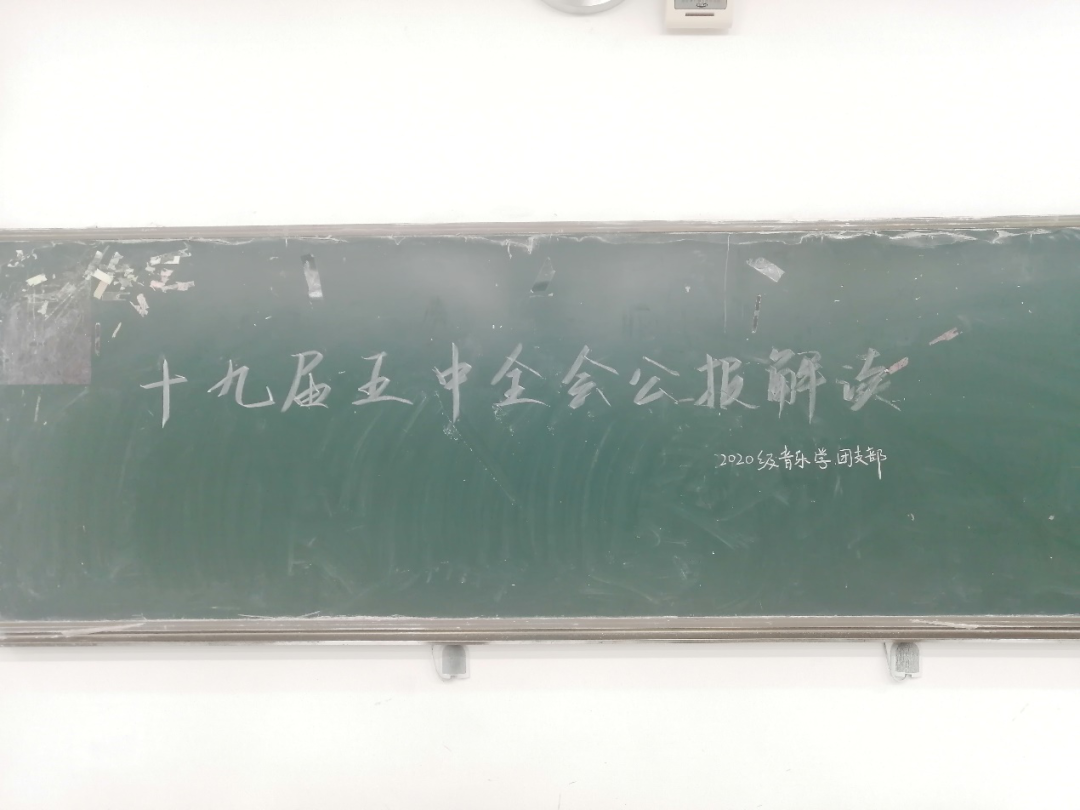 十九届五中全会公报解读
2020级音乐学团支部